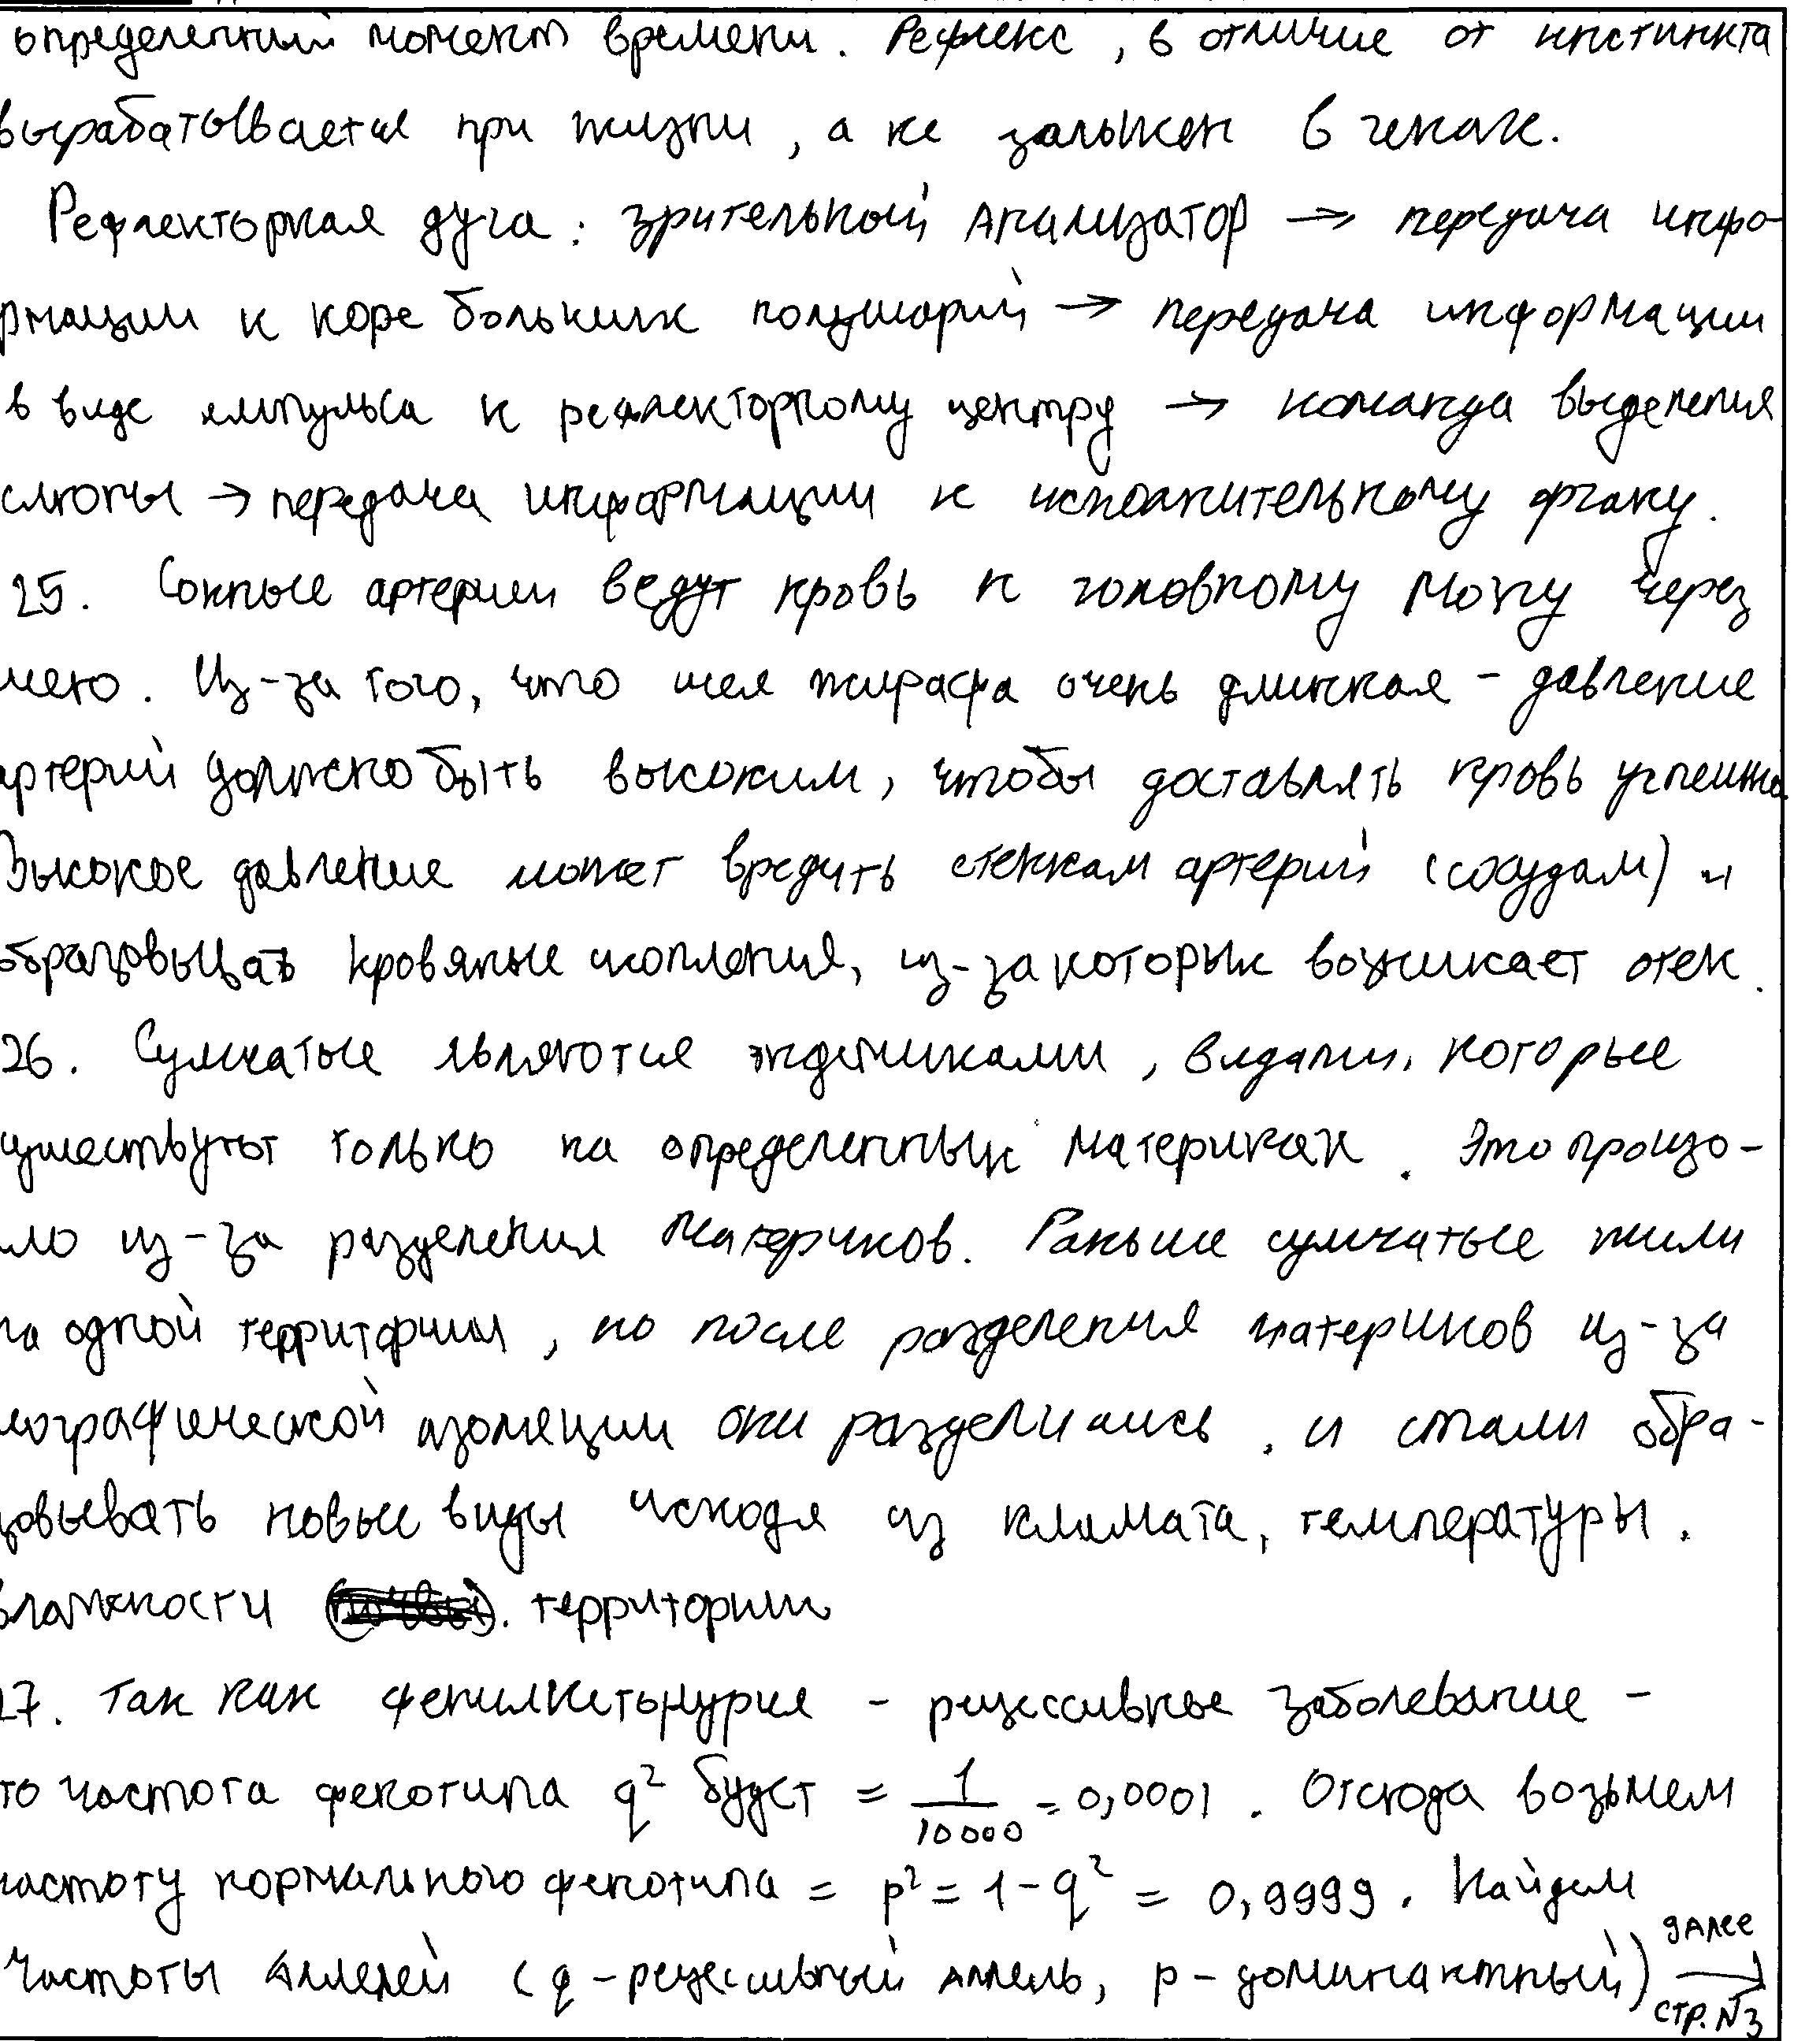 определенный момент времени. Рефлекс, в отличие от инстинкта
вырабатывается при жизни, а не заложен в генах.
Рефлекторная дуга: зрительный анализатор → передача инфо-
рмации к коре больших полушарий → передача информации
в виде импульса к рефлекторному центру → команда выделения
слюны → передача информации к исполнительному органу.
25. Сонные артерии ведут кровь к головному мозгу через
шею. Из-за того, что шея жирафа очень длинная - давление
артерий должно быть высоким, чтобы доставлять кровь успешно.
Высокое давление может вредить стенкам артерий (сосудам) и
образовывать кровяные скопления, из-за которых возникает отек.
26. Сумчатые являются эндемиками, видами, которые
существуют только на определенных материках. Это произо-
шло из-за разделения материков. Раньше сумчатые жили
на одной территории, но после разделения материков из-за
географической изоляции они разделились, и стали обра-
зовывать новые виды исходя из климата, температуры,
влажности территории
27. Так как фенилкетонурия - рецессивное заболевание -
то частота фенотипа q² будет = 1/10000 = 0,0001. Отсюда возьмем
частоту нормального фенотипа = p² = 1 - q² = 0,9999. Найдем
частоты аллелей (q - рецессивный аллель, p - доминантный) далее →
стр. №3